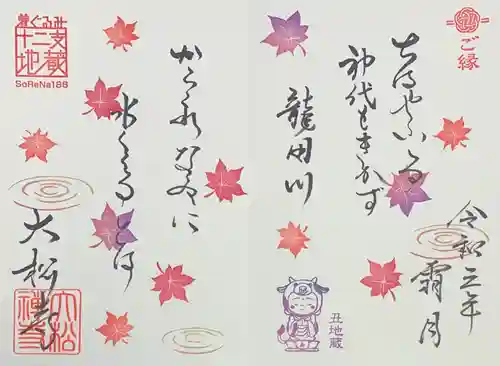 ご縁
ちはやふる
神代もきかず
龍田川
令和三年
霜月
丑地蔵
からくれなゐに
水くくるとは
大松寺
着ぐるみ
十二支地蔵
SoReNa186
大松禅寺